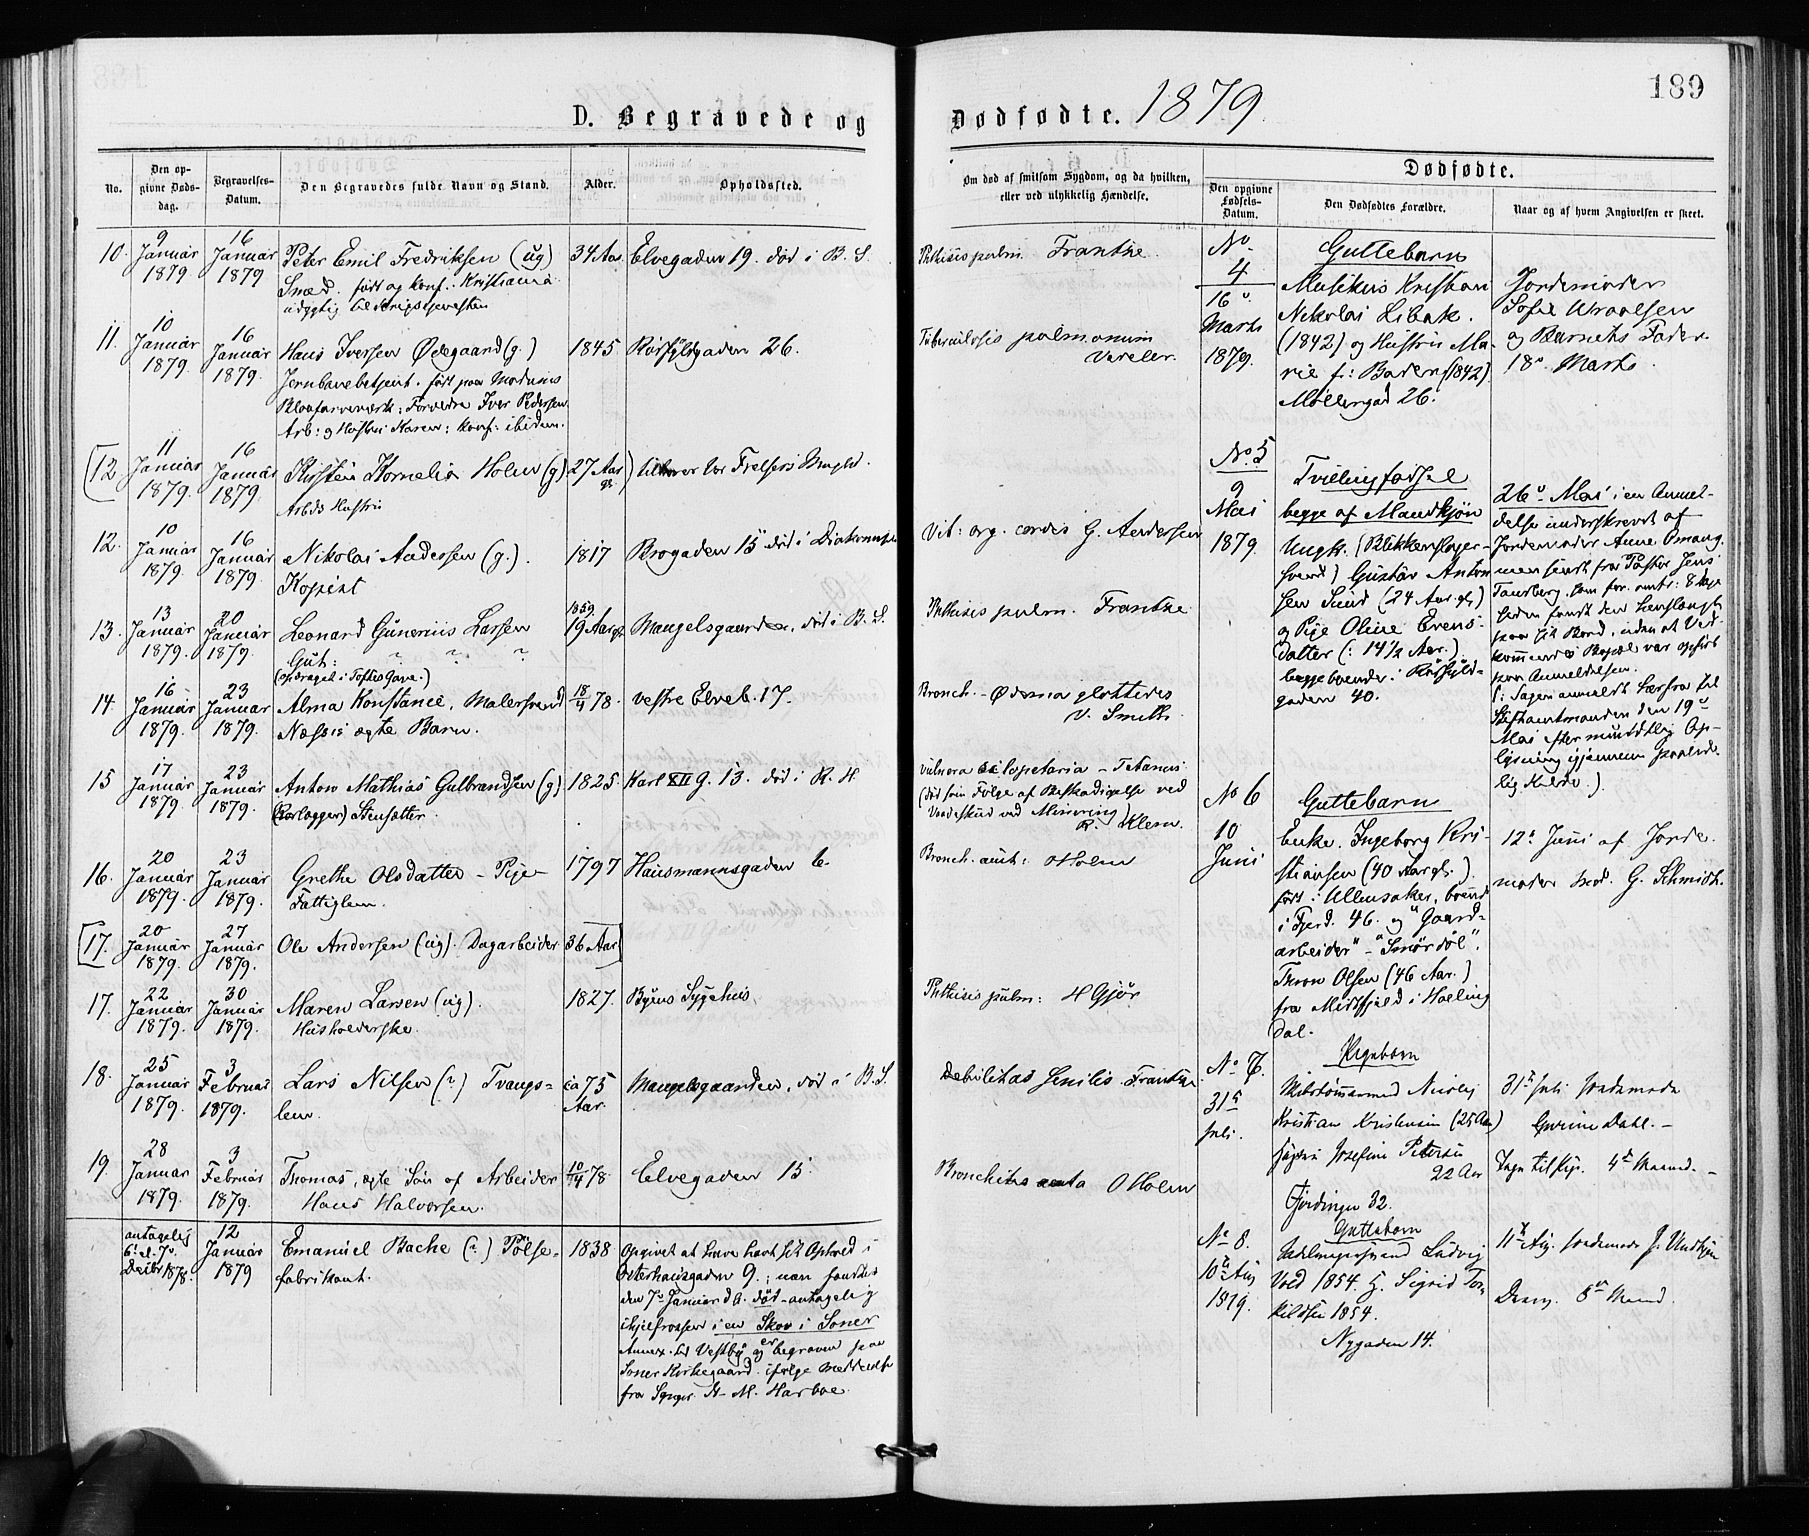 189
D. Begravede og
Dødfødte. 1879.
No.
Den op-
givne Døds-
dag.
Begravelses-
Datum.
Den Begravedes fulde Navn og Stand.
Alder.
Opholdssted.
10.
9
Januar
1879
16
Januar
1879
Peter Emil Fredriksen (ug)
født og konf: Kristiania
udygtig til Krigstjenesten
34 Aar
Elvegaden 19. død i B. S.
11.
10
Januar
1879
16
Januar
1879.
Hans Iversen Ødegaard (g.)
Jernbanebetjent. født paa Modums
Blaafarveværk: Forældre Iver Pedersen
Arb: og Hustru Karen; konf: ibidem.
1845
Rörfyldgaden 26.
12.
11
Januar
1879.
16
Januar
1879.
Kristen Kornelia Holm (g)
Arbds Hustru
27 Aar
gl.
tilhører vor Frelsers Meghd.
12.
10
Januar
1879.
16
Januar
1879
Nikolai Andersen (g.).
Kopist
1817
Brogaden 15 død i Diakonissh
13.
13
Januar
1879.
20
Januar
1879.
Leonard Gunerius Larsen
Gut:
(opdraget i Toftes Gave.)
1859
19 Aar gl.
Mangelsgaarden, død i B. S.
14.
16
Januar
1879.
23
Januar
1879.
Alma Konstance, Malersvend
Næss's ægte Barn.
18/4 78.
vestre Elveb. 17.
15
17
Januar
1879.
23
Januar
1879.
Anton Mathias Gulbrandsen (g)
Stensætter.
1825.
Karl XII G. 13. død i R. H
16.
20
Januar
1879.
23
Januar
1879.
Grethe Olsdatter - Pige
Fattiglem.
1797
Hausmannsgaden 6.
17.
20
Januar
1879.
27
Januar
1879.
Ole Andersen (ug). Dagarbeider
36 Aar
17.
22
Januar
1879.
30
Januar
1879.
Maren Larsen (ug).
Husholderske.
1827.
Byens Sygehus.
18.
25
Januar
1879.
3
Februar
1879.
Lars Nilsen (?) Tvangs-
lem.
ca 75
Aar.
Mangelsgaarden, død i B. S.
19.
28
Januar
1879.
3
Februar
1879.
Thomas, ægte Søn af Arbeider
Hans Halvorsen.
10/4 78
Elvegaden 15.
antagelig
6 el. 7
Decbr 1878.
12
Januar
1879
Emanuel Bache (?) Pølse-
fabrikant.
1838
Opgivet at have havt sit Ophold i
Osterhausgaden 9.; man fandtes
den 7 Januar d. A. død - antagelig
ihjelfrossen i en Skov i Soner
Annex til Vestby og er begraven paa
Soner Kirkegaard. ifølge Meddelelse
fra Sgpr. H. M. Harboe.
Om død af smitsom Sygdom, og da hvilken,
eller ved ulykkelig Hændelse.
Phthisis pulm. Frantze.
Tuberculosis pulmonum
Vit: org. cordis G. Andersen
Phthisis pulm. Frantze
Bronch. - Ødema glottidis
v. Smith.
Tetanus
(død som Følge af Beskadigelse ved
Vaadeskud ved Minering)
R. Klem.
Bronch. acut: Holm
Phthisis pulm: H Gjør
Debilitas senilis - Frantze
Bronchitis acuta O Holm
Dødfødte.
Den opgivne
Fødsels-
Datum.
Den Dødfødtes Forældre.
Naar og af hvem Angivelsen er skeet.
No.
4
16
Marts
1879.
Guttebarn
Musikus Kristian
Nikolai Libak.
(1842) og Hustru Ma-
rie f: Baden (1842).
Møllergad 26.
Jordemoder
Sofie Wraalsen
og Barnets Fader.
18 Marts.
No. 5
9
Mai
1879.
Tvillingfødsel
begge af Mandkjøn
Ungk. (Blikkenslager-
svend) Gustav Anton
sen Sund (24 Aar gl.)
og Pige Oline Evens-
datter (: 14½ Aar.)
begge boende: Rörfyld-
gaden 40.
26 Mai i en Anmel-
delse underskrevet af
Jordemoder Anne Omang.
men sendt fra Pastor Jens
Tandberg, som for omtr: 8 Dage
siden fandt den henslængt
paa sit Bord, uden at Ved-
kommendes Bopæl var opført
paa Anmeldelsen.
(: Sagen anmeldt herfra til
Stiftamtmanden den 19
Mai efter mundtlig Op-
lysning igjennem paalide-
lig Kilde.)
No 6
10
Juni
Guttebarn
Enke. Ingeborg Kri-
stiansen (40 Aar gl.)
født i Ullensaker, boende
i Fjerd. 46. og "Gaard-
arbeider" - "Smørdøl".
Thron Olsen (46 Aar.)
fra i Halling
dal.
12 Juni af Jorde-
moder G. Schmidt.
No. 7.
31
Juli.
Pigebarn
Kristian Kristensen (25 Aar)
Josefine Petersen
22 Aar
Fjerdingen 32.
31 Juli Jordemoder
Gurine Dahl. -
4 Maaned. -
No 8.
10 Aug
1879.
Guttebarn
Ludvig
Vold 1854. Sigrid Tor-
kildsen 1854.
Nygaden 14.
11 Aug. Jordemoder J. Undhjem
8 Maaned.